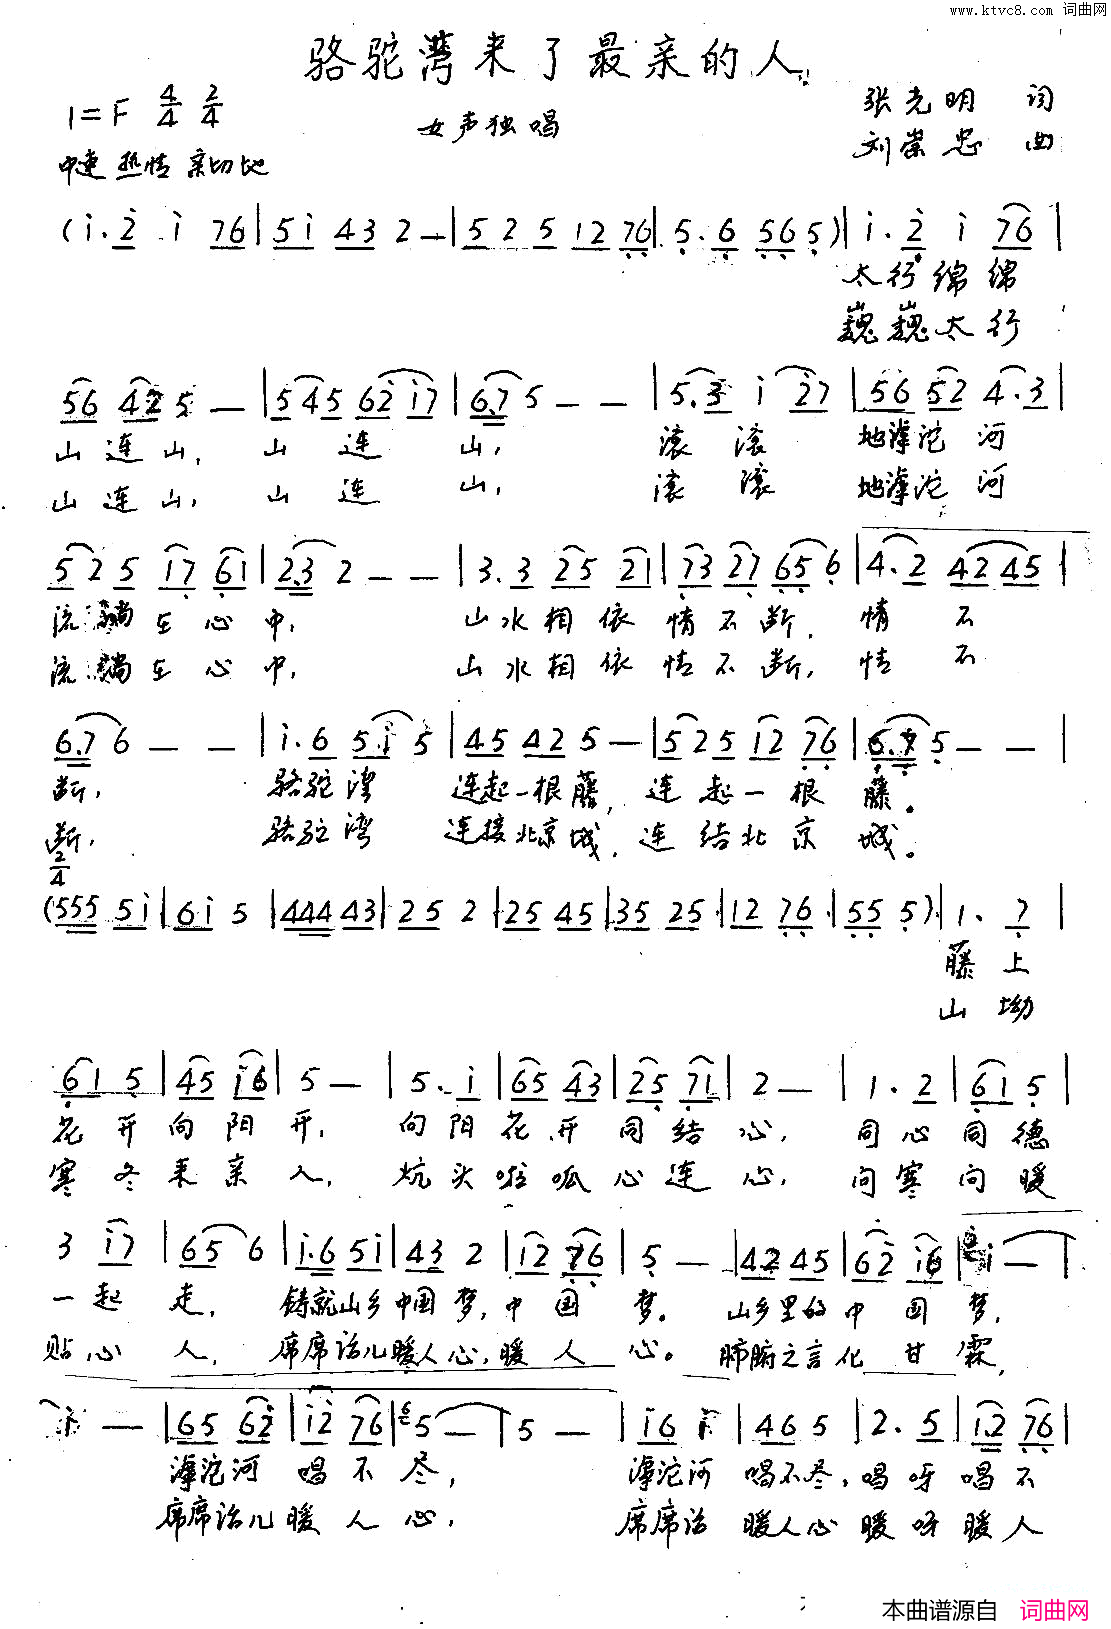 www.ktvc8.com 词曲网
骆驼湾来了最亲的人
1=F 4/4 2/4
女声独唱
张克明 词
刘崇忠 曲
中速 热情 亲切地
(i.2 i 76|5i 43 2 —|5 2 5 12 76|5.6 565)|i.2 i 76|
太行绵绵
巍巍太行
56 42 5 —|545 62i7|6.7 5 — —|5.3 i 27|56 52 4.3|
山连山, 山连山, 滚滚地滹沱河
山连山, 山连山, 滚滚地滹沱河
52 5 i7 61|2.3 2 — —|3.3 25 21|73 27 65 6|4.2 4245|
流淌在心中, 山水相依情不断, 情不
流淌在心中, 山水相依情不断, 情不
6.7 6 — —|i.6 5.i 5|45 42 5 —|525 12 76|6.7 5 — —|
断, 骆驼湾 连起一根藤, 连起一根藤。
断, 骆驼湾 连接北京城, 连结北京城。
2/4
(555 5i|6i 5|444 43|25 2|25 45|35 25|12 76|55 5)|1. 7|
藤上
山坳
61 5|45 i6|5 —|5. i|65 43|25 71|2 —|1. 2|61 5|
花开向阳开, 向阳花开同结心, 同心同德
寒冬来亲人, 炕头啦呱心连心, 问寒问暖
3 i7|65 6|i.6 5i|43 2|12 76|5 —|42 45|62 i6|i —|
一起走, 铸就山乡中国梦, 中国梦。 山乡里的中国梦,
贴心人, 席席话儿暖人心, 暖人心。 肺腑之言化甘霖,
i —|65 62|i2 76|5 —|5 —|i6 i|46 5|2. 5|12 76|
滹沱河唱不尽, 滹沱河唱不尽, 唱呀唱不
席席话儿暖人心, 席席话暖人心暖呀暖人
本曲谱源自 词曲网